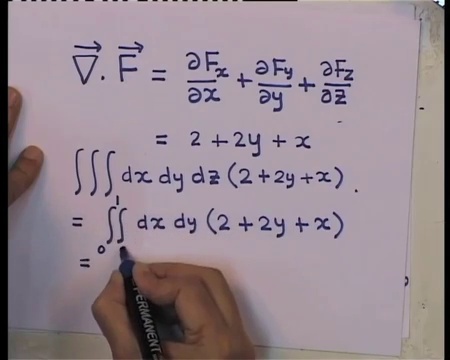 ∇⃗ . F⃗ = ∂Fx/∂x + ∂Fy/∂y + ∂Fz/∂z
= 2 + 2y + x
∫∫∫ dx dy dz (2 + 2y + x) .
= ∫∫₀¹ dx dy (2 + 2y + x)
=
PERMANENT